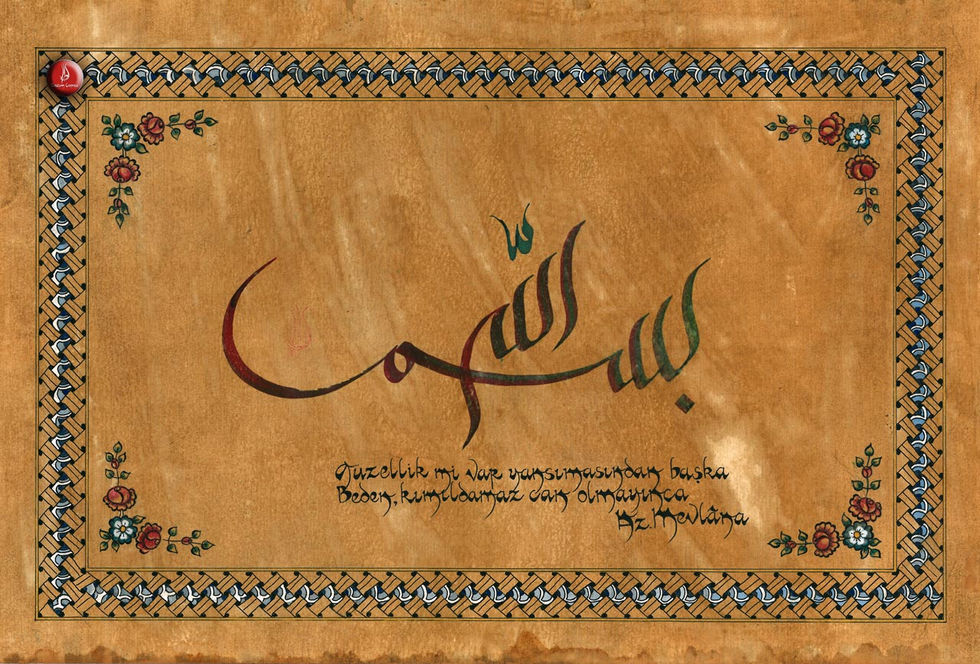 بسم الله
Güzellik mi var yansımasından başka
Beden, kımıldamaz can olmayınca
Hz. Mevlâna